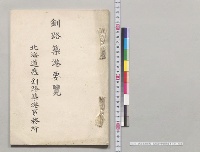 釧路築港要覧
北海道廳釧路築港事務所